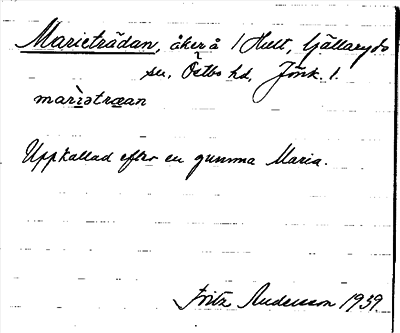 Marieträdan, åker å 1 Hult, Gällaryds
sn, Östbo hd, Jönk. l.
marìətræan
Uppkallad efter en gumma Maria.
Fritz Andersson 1939.